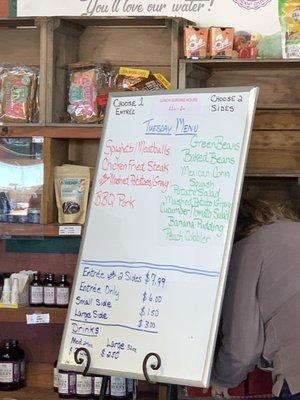 You'll love our water!
Choose 1
Entrée
Lunch Serving Hours
11am-2pm
Choose 2
Sides
Tuesday Menu
Spaghetti w/ Meatballs
Chicken Fried Steak
w/ Mashed Potatoes/Gravy
BBQ Pork
Green Beans
Baked Beans
Mexican Corn
Squash
Potatoes Salad
Mashed Potatoes w/ Gravy
Cucumber/Tomato Salad
Banana Pudding
Peach Cobbler
Entrée w/ 2 Sides $7.99
Entrée Only $6.00
Small Side $1.50
Large Side $3.00
Drinks
Med. 24oz Large 32oz
$2.50